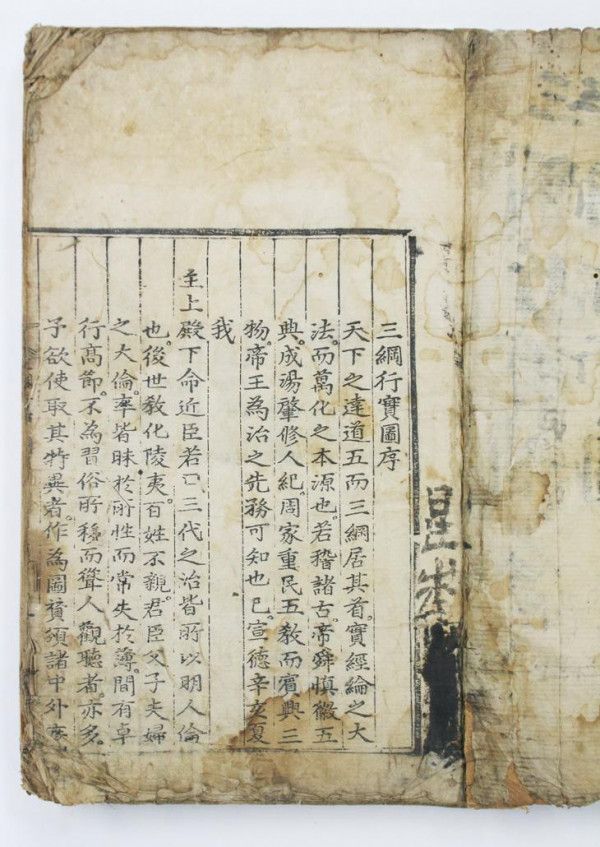 三綱行實圖序
天下之達道五而三綱居其首。實經綸之大
法。而萬化之本源也若稽諸古。帝舜慎徽五
典。成湯肇修人紀。周家重民五敎而賓興三
物。帝王為治之先務可知也已。宣德辛亥夏
我
主上殿下命近臣若曰三代之治皆所以明人倫
也。後世敎化陵夷。百姓不親。君臣父子夫婦
之大倫。率皆昧於所性而常失於薄。間有卓
行高節。不為習俗所移而聳人觀聽者。亦多。
予欲使取其特異者。作為圖賛頒諸中外